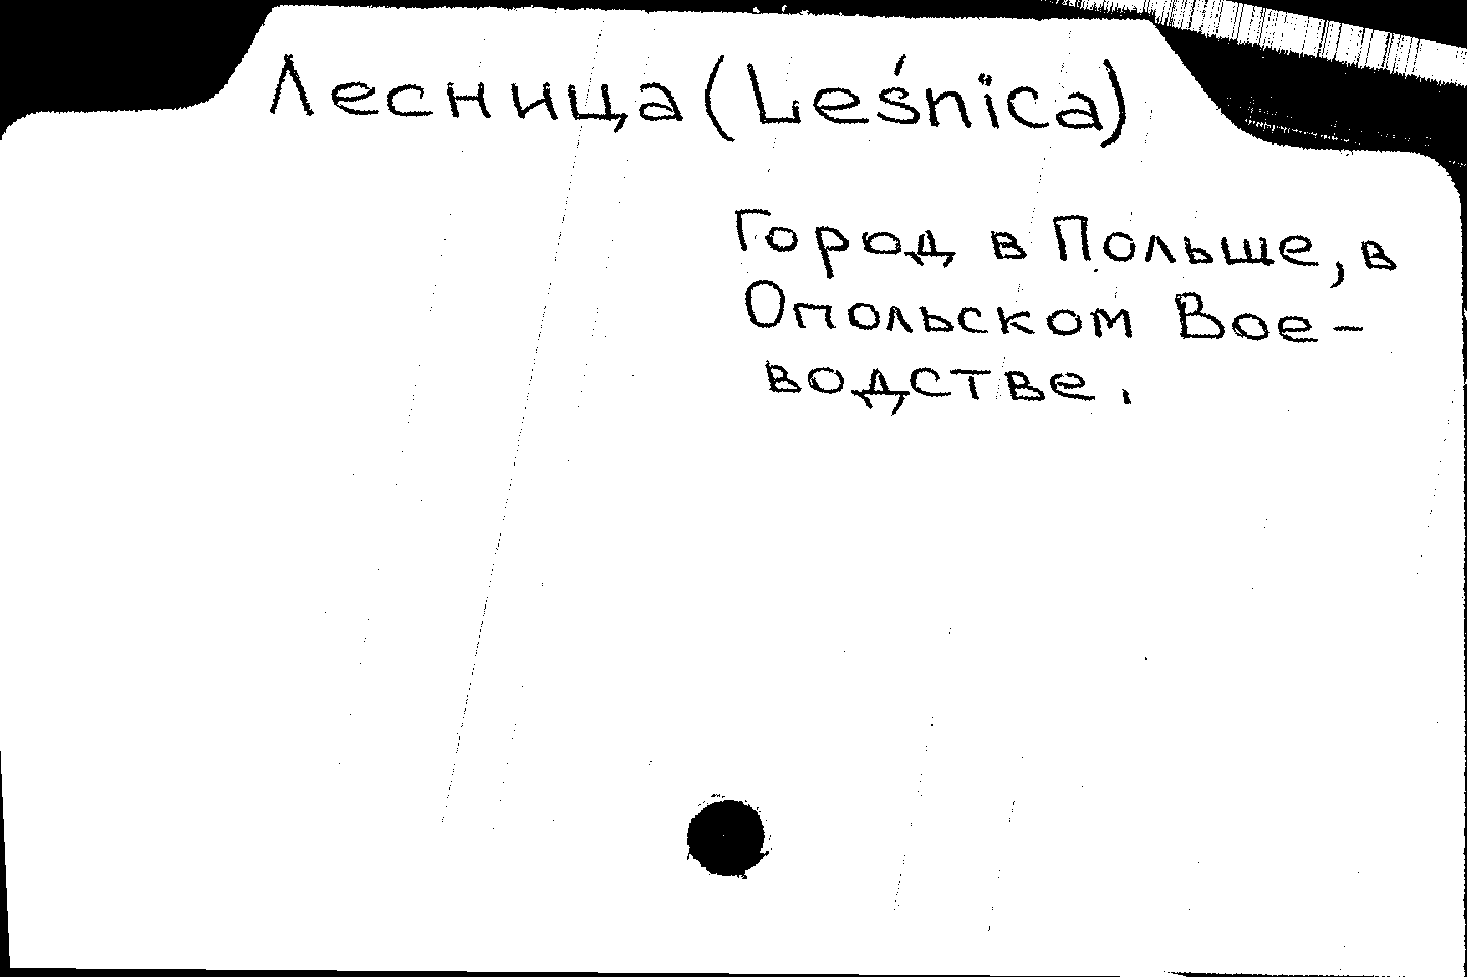 Лесница (Leśnica)
Город в Польше, в
Опольском Вое-
водстве.